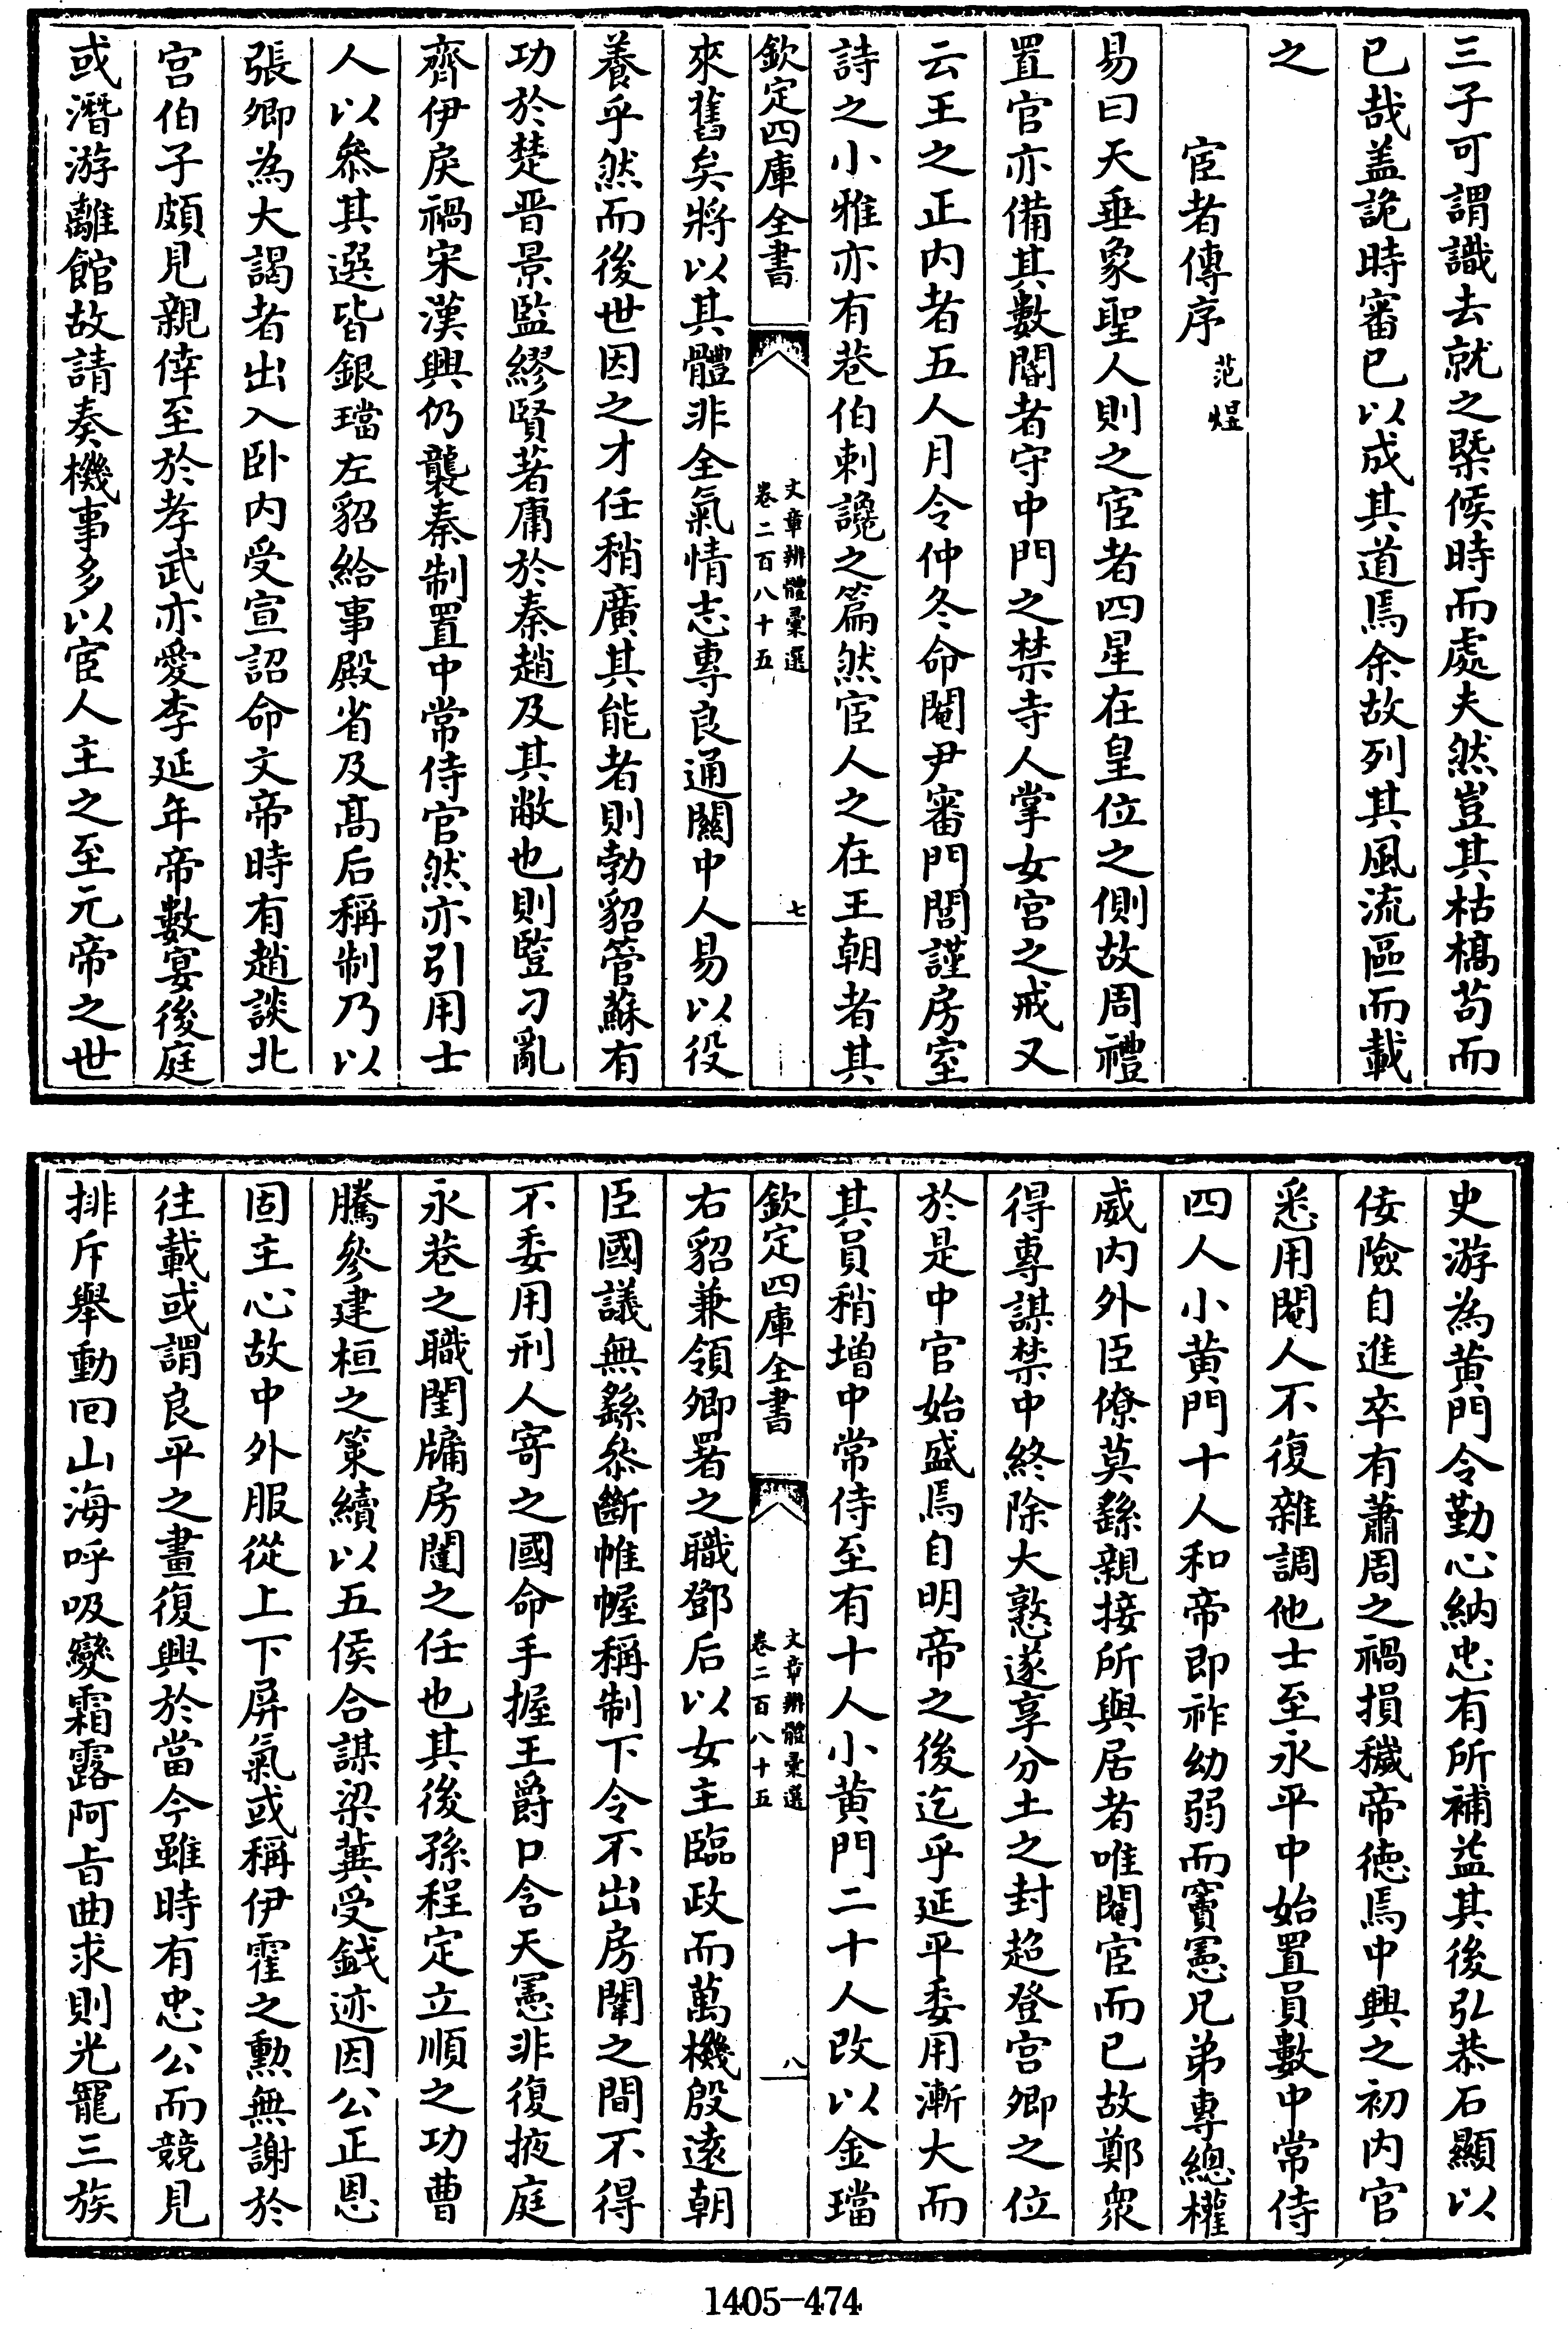 三子可謂識去就之槩候時而處夫然豈其枯槁苟而
已哉盖詭時審已以成其道焉余故列其風流區而載
之
宦者傳序 范煜
易曰天垂象聖人則之宦者四星在皇位之側故周禮
置官亦備其數閽者守中門之禁寺人掌女宫之戒又
云王之正内者五人月令仲冬命閹尹審門閭謹房室
詩之小雅亦有巷伯刺讒之篇然宦人之在王朝者其
欽定四庫全書 文章辨體彚選 卷二百八十五 七
來舊矣將以其體非全氣情志專良通關中人易以役
養乎然而後世因之才任稍廣其能者則勃貂管蘇有
功於楚晋景監繆賢著庸於秦趙及其敝也則豎刁亂
齊伊戾禍宋漢興仍襲秦制置中常侍官然亦引用士
人以叅其選皆銀璫左貂給事殿省及髙后稱制乃以
張卿為大謁者出入卧内受宣詔命文帝時有趙談北
宫伯子頗見親倖至於孝武亦愛李延年帝數宴後庭
或潛游離館故請奏機事多以宦人主之至元帝之世
史游為黄門令勤心納忠有所補益其後弘恭石顯以
佞險自進卒有蕭周之禍損穢帝徳焉中興之初内官
悉用閹人不復雜調他士至永平中始置員數中常侍
四人小黄門十人和帝即祚幼弱而竇憲兄弟專總權
威内外臣僚莫繇親接所與居者唯閹宦而已故鄭衆
得專謀禁中終除大憝遂享分土之封超登宫卿之位
於是中官始盛焉自明帝之後迄乎延平委用漸大而
其員稍增中常侍至有十人小黄門二十人改以金璫
欽定四庫全書 文章辨體彚選 卷二百八十五 八
右貂兼領卿署之職鄧后以女主臨政而萬機殷逺朝
臣國議無繇叅斷帷幄稱制下令不出房闈之間不得
不委用刑人寄之國命手握王爵口含天憲非復掖庭
永巷之職閨牖房闥之任也其後孫程定立順之功曹
騰參建桓之策續以五侯合謀梁冀受鉞迹因公正恩
固主心故中外服從上下屏氣或稱伊霍之勲無謝於
往載或謂良平之畫復興於當今雖時有忠公而競見
排斥舉動回山海呼吸變霜露阿㫖曲求則光寵三族
1405-474